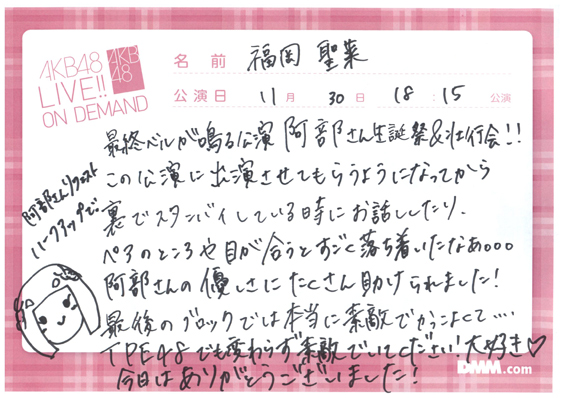 AKB48
LIVE!!
ON DEMAND
AKB
48
名前 福岡 聖菜
公演日 11月 30日 18:15 公演
最終ベルが鳴る公演 阿部さん生誕祭&壮行会!!
この公演に出演させてもらうようになってから
裏でスタンバイしている時にお話ししたり、
ペアのところや目が合うとすごく落ち着いたなあ。。。
阿部さんの優しさにたくさん助けられました!
最後のブロックでは本当に素敵でかっこよくて....
TPE48でも変わらず素敵でいてください!大好き♡
今日はありがとうございました!
阿部さんリクエスト
ハーフアップで
DMM.com